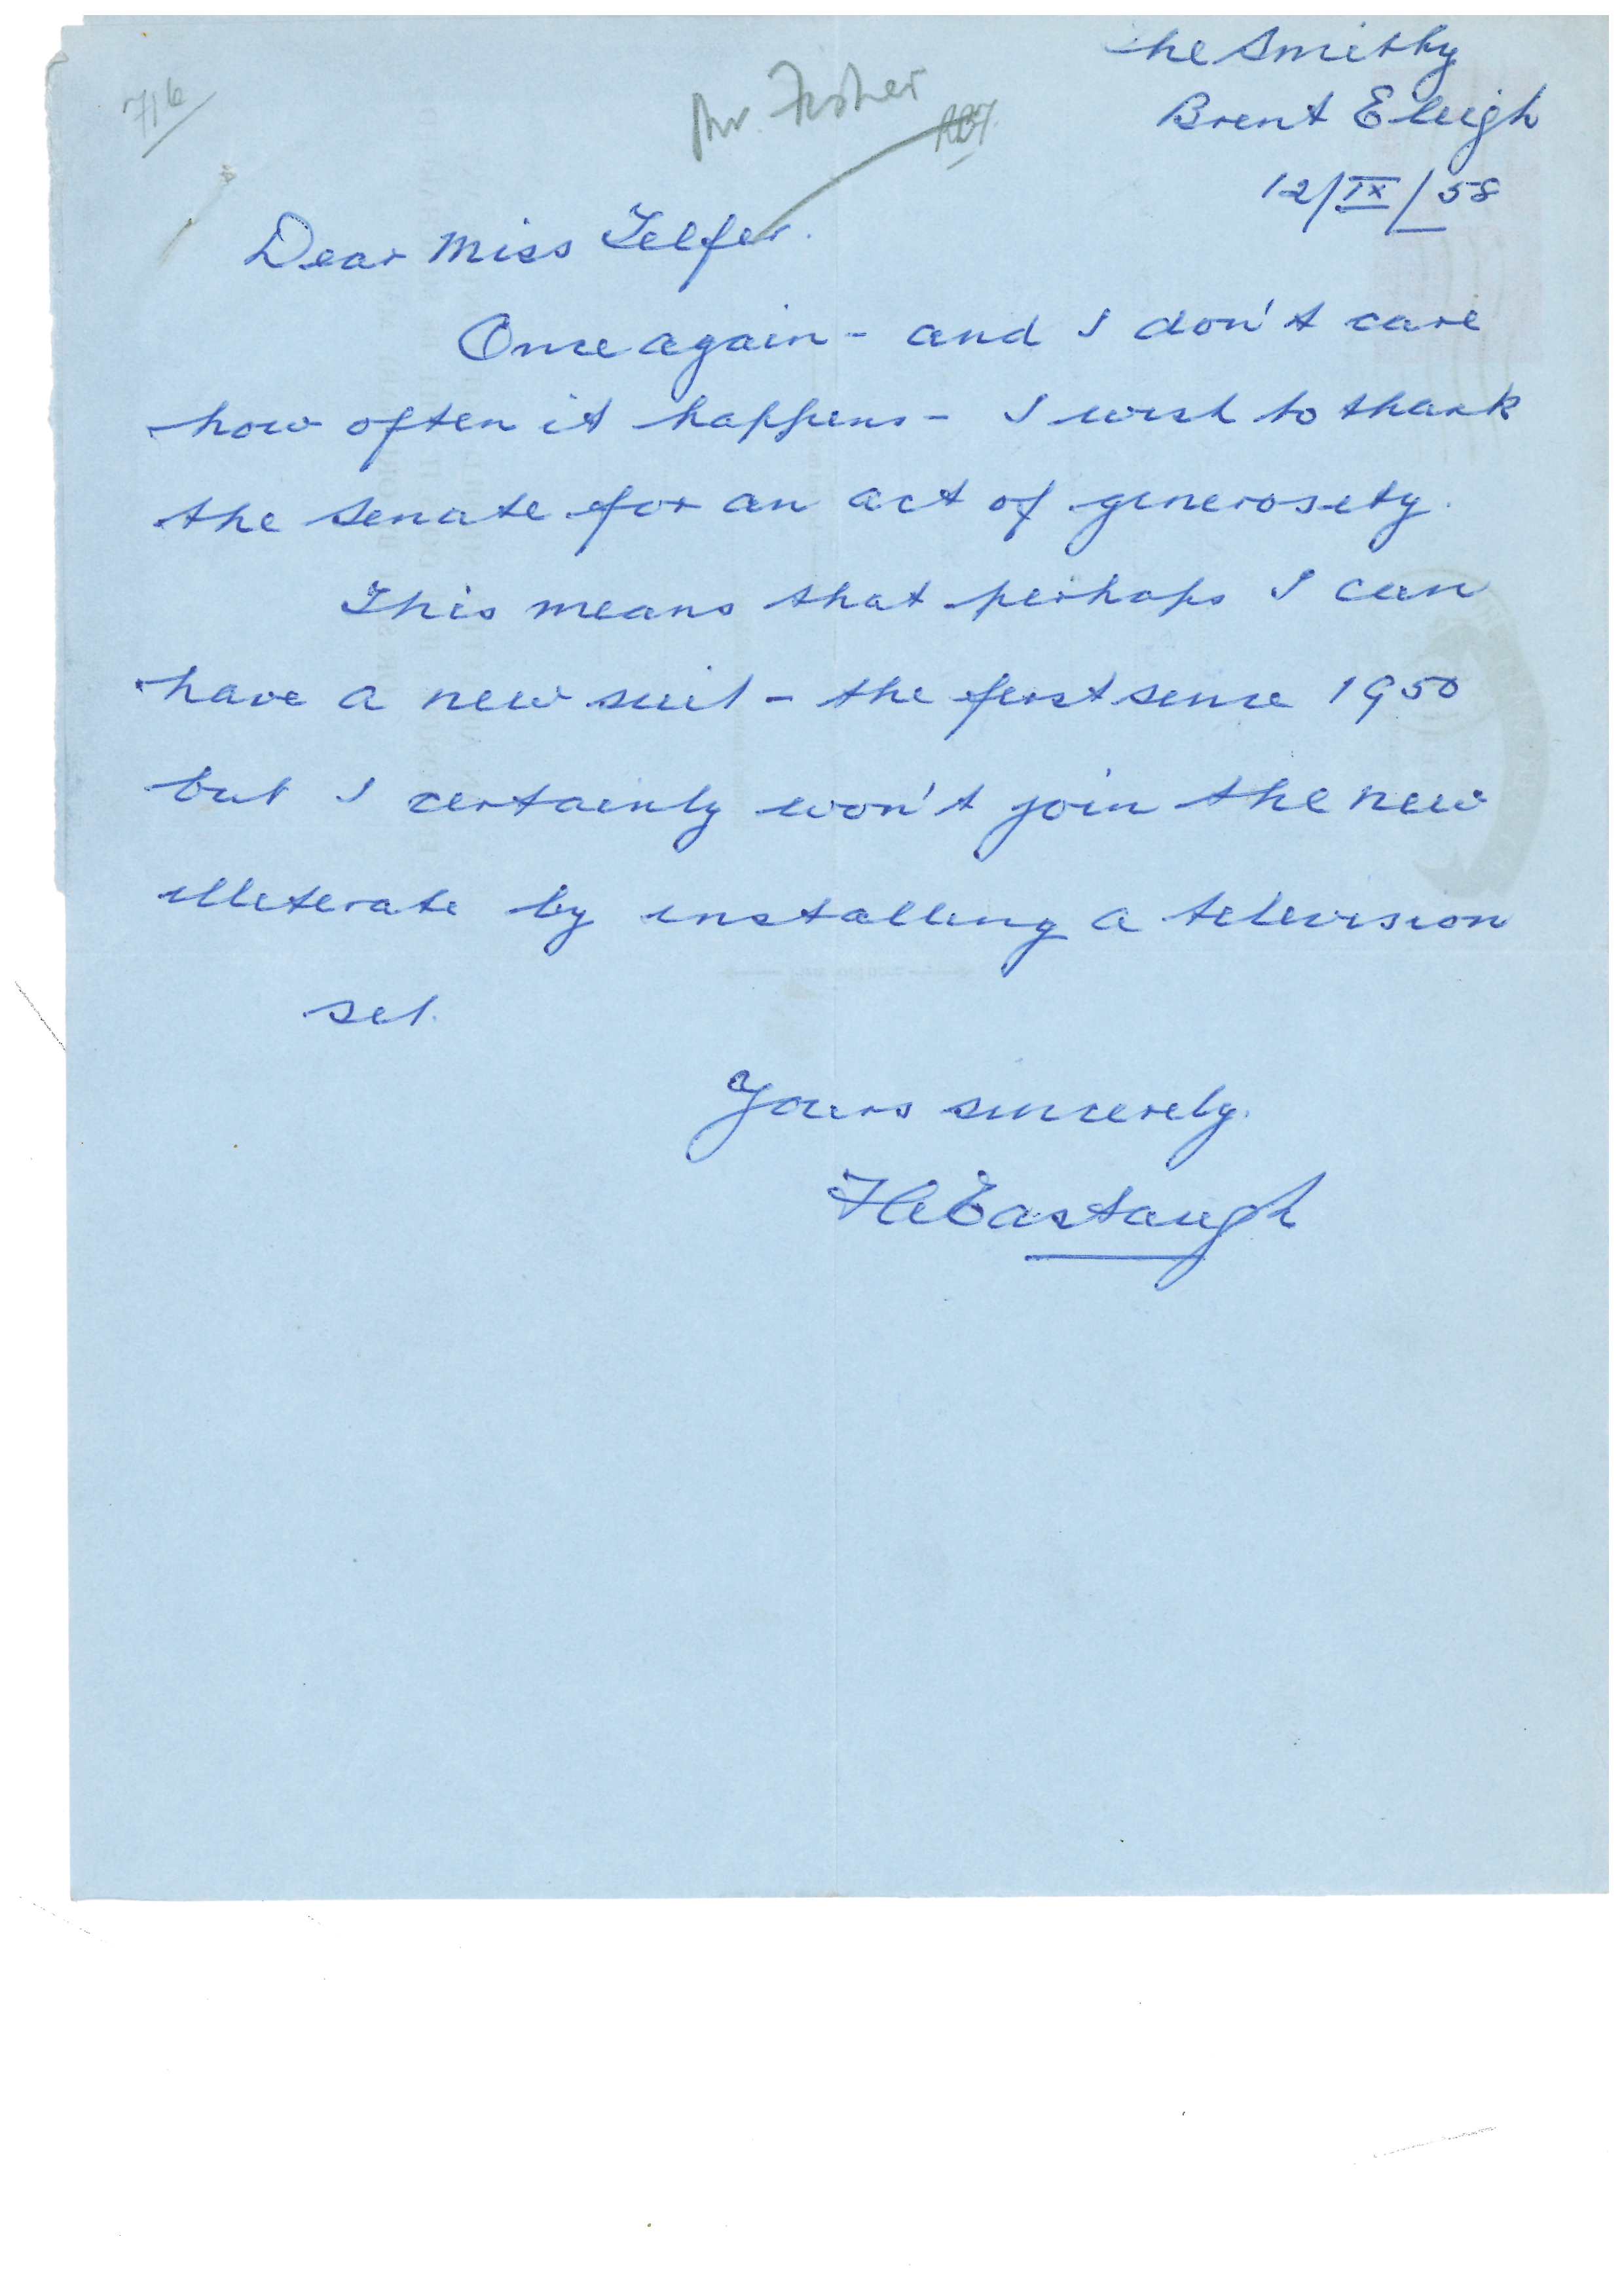 The Smithy
Brent Eleigh
12/IX/58
716
Mr. Fisher
Dear Miss Telfer.
Once again - and I don't care
how often it happens - I wish to thank
the Senate for an act of generosity.
This means that perhaps I can
have a new suit - the first since 1950
but I certainly won't join the new
illiterate by installing a television
set.
Yours sincerely.
Eastaugh